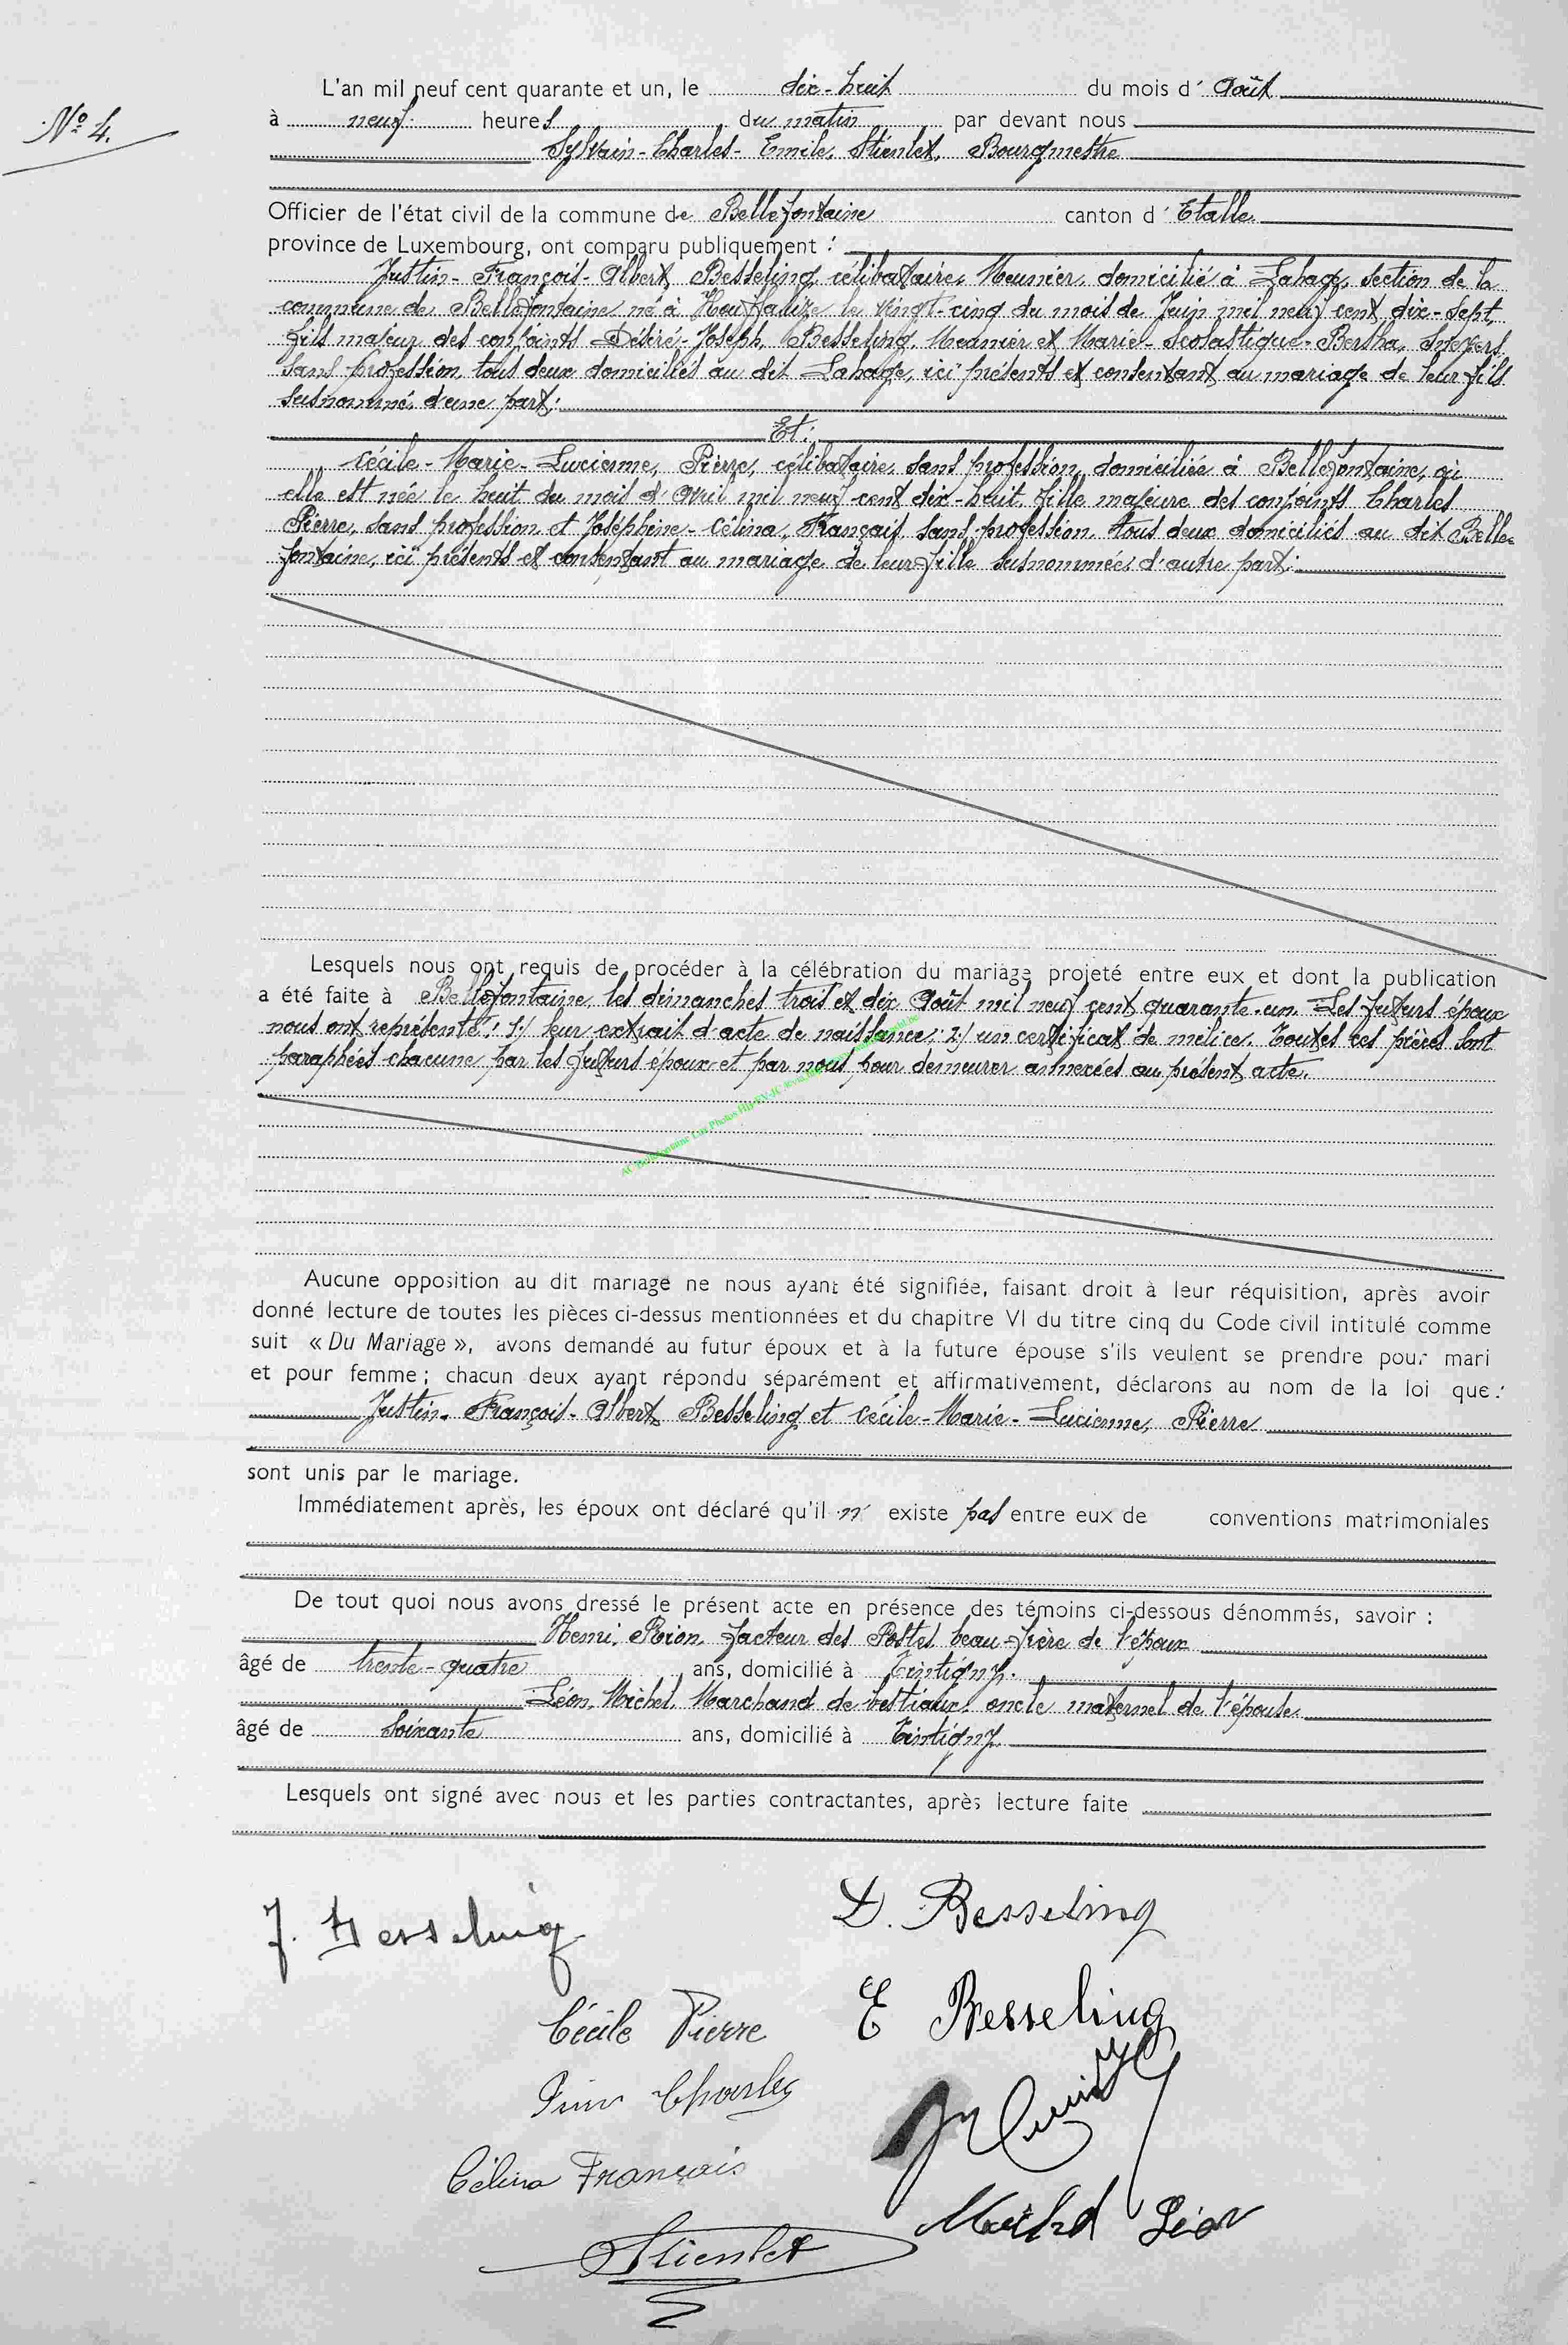 L'an mil neuf cent quarante et un, le dix-huit du mois d' Août
Nº 4.
à neuf heures du matin par devant nous
Sylvain-Charles-Emile, Stienlet, Bourgmestre
Officier de l'état civil de la commune de Bellefontaine canton d' Etalle
province de Luxembourg, ont comparu publiquement :
Justin-François-Albert, Besseling, célibataire, Meunier, domicilié à Lahage, section de la
commune de Bellefontaine né à Houffalize le vingt-cinq du mois de Juin mil neuf cent dix-sept,
fils majeur des conjoints Désiré-Joseph, Besseling, Meunier et Marie-Scolastique-Bertha,
sans profession, tous deux domiciliés au dit Lahage, ici présents et consentant au mariage de leur fils
susnommé, d'une part:
Et:
Cécile-Marie-Lucienne, Pierre, célibataire, sans profession, domiciliée à Bellefontaine, où
elle est née le huit du mois d'Avril mil neuf cent dix-huit, fille majeure des conjoints Charles
Pierre, sans profession et Joséphine-Célina, Français, sans profession tous deux domiciliés au dit Belle-
fontaine, ici présents et consentant au mariage de leur fille susnommée, d'autre part:
Lesquels nous ont requis de procéder à la célébration du mariage projeté entre eux et dont la publication
a été faite à Bellefontaine, les dimanches trois et dix Août mil neuf cent quarante-un. Les futurs époux
nous ont représenté: 1:/ leur extrait d'acte de naissance; 2:/ un certificat de milice. Toutes ces pièces sont
paraphées chacune par les futurs époux et par nous pour demeurer annexées au présent acte.
AC Bellefontaine Lux Photos
Aucune opposition au dit mariage ne nous ayant été signifiée, faisant droit à leur réquisition, après avoir
donné lecture de toutes les pièces ci-dessus mentionnées et du chapitre VI du titre cinq du Code civil intitulé comme
suit « Du Mariage », avons demandé au futur époux et à la future épouse s'ils veulent se prendre pour mari
et pour femme ; chacun deux ayant répondu séparément et affirmativement, déclarons au nom de la loi que:
Justin-François-Albert Besseling et Cécile-Marie-Lucienne, Pierre
sont unis par le mariage.
Immédiatement après, les époux ont déclaré qu'il n' existe pas entre eux de conventions matrimoniales
De tout quoi nous avons dressé le présent acte en présence des témoins ci-dessous dénommés, savoir :
Henri, Rion, facteur des Postes, beau-frère de l'époux
âgé de trente-quatre ans, domicilié à Tintigny.
Léon, Michel, Marchand de bestiaux, oncle maternel de l'épouse
âgé de soixante ans, domicilié à Tintigny
Lesquels ont signé avec nous et les parties contractantes, après lecture faite
J. Besseling
D. Besseling
Cécile Pierre
E Besseling
Pierre Charles
Célina Français
Michel Léon
Stienlet